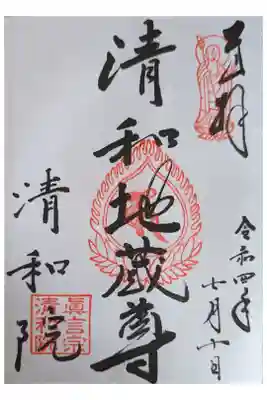 奉拝
令和四年
七月十日
清和地蔵尊
清和院
眞言宗
清和院